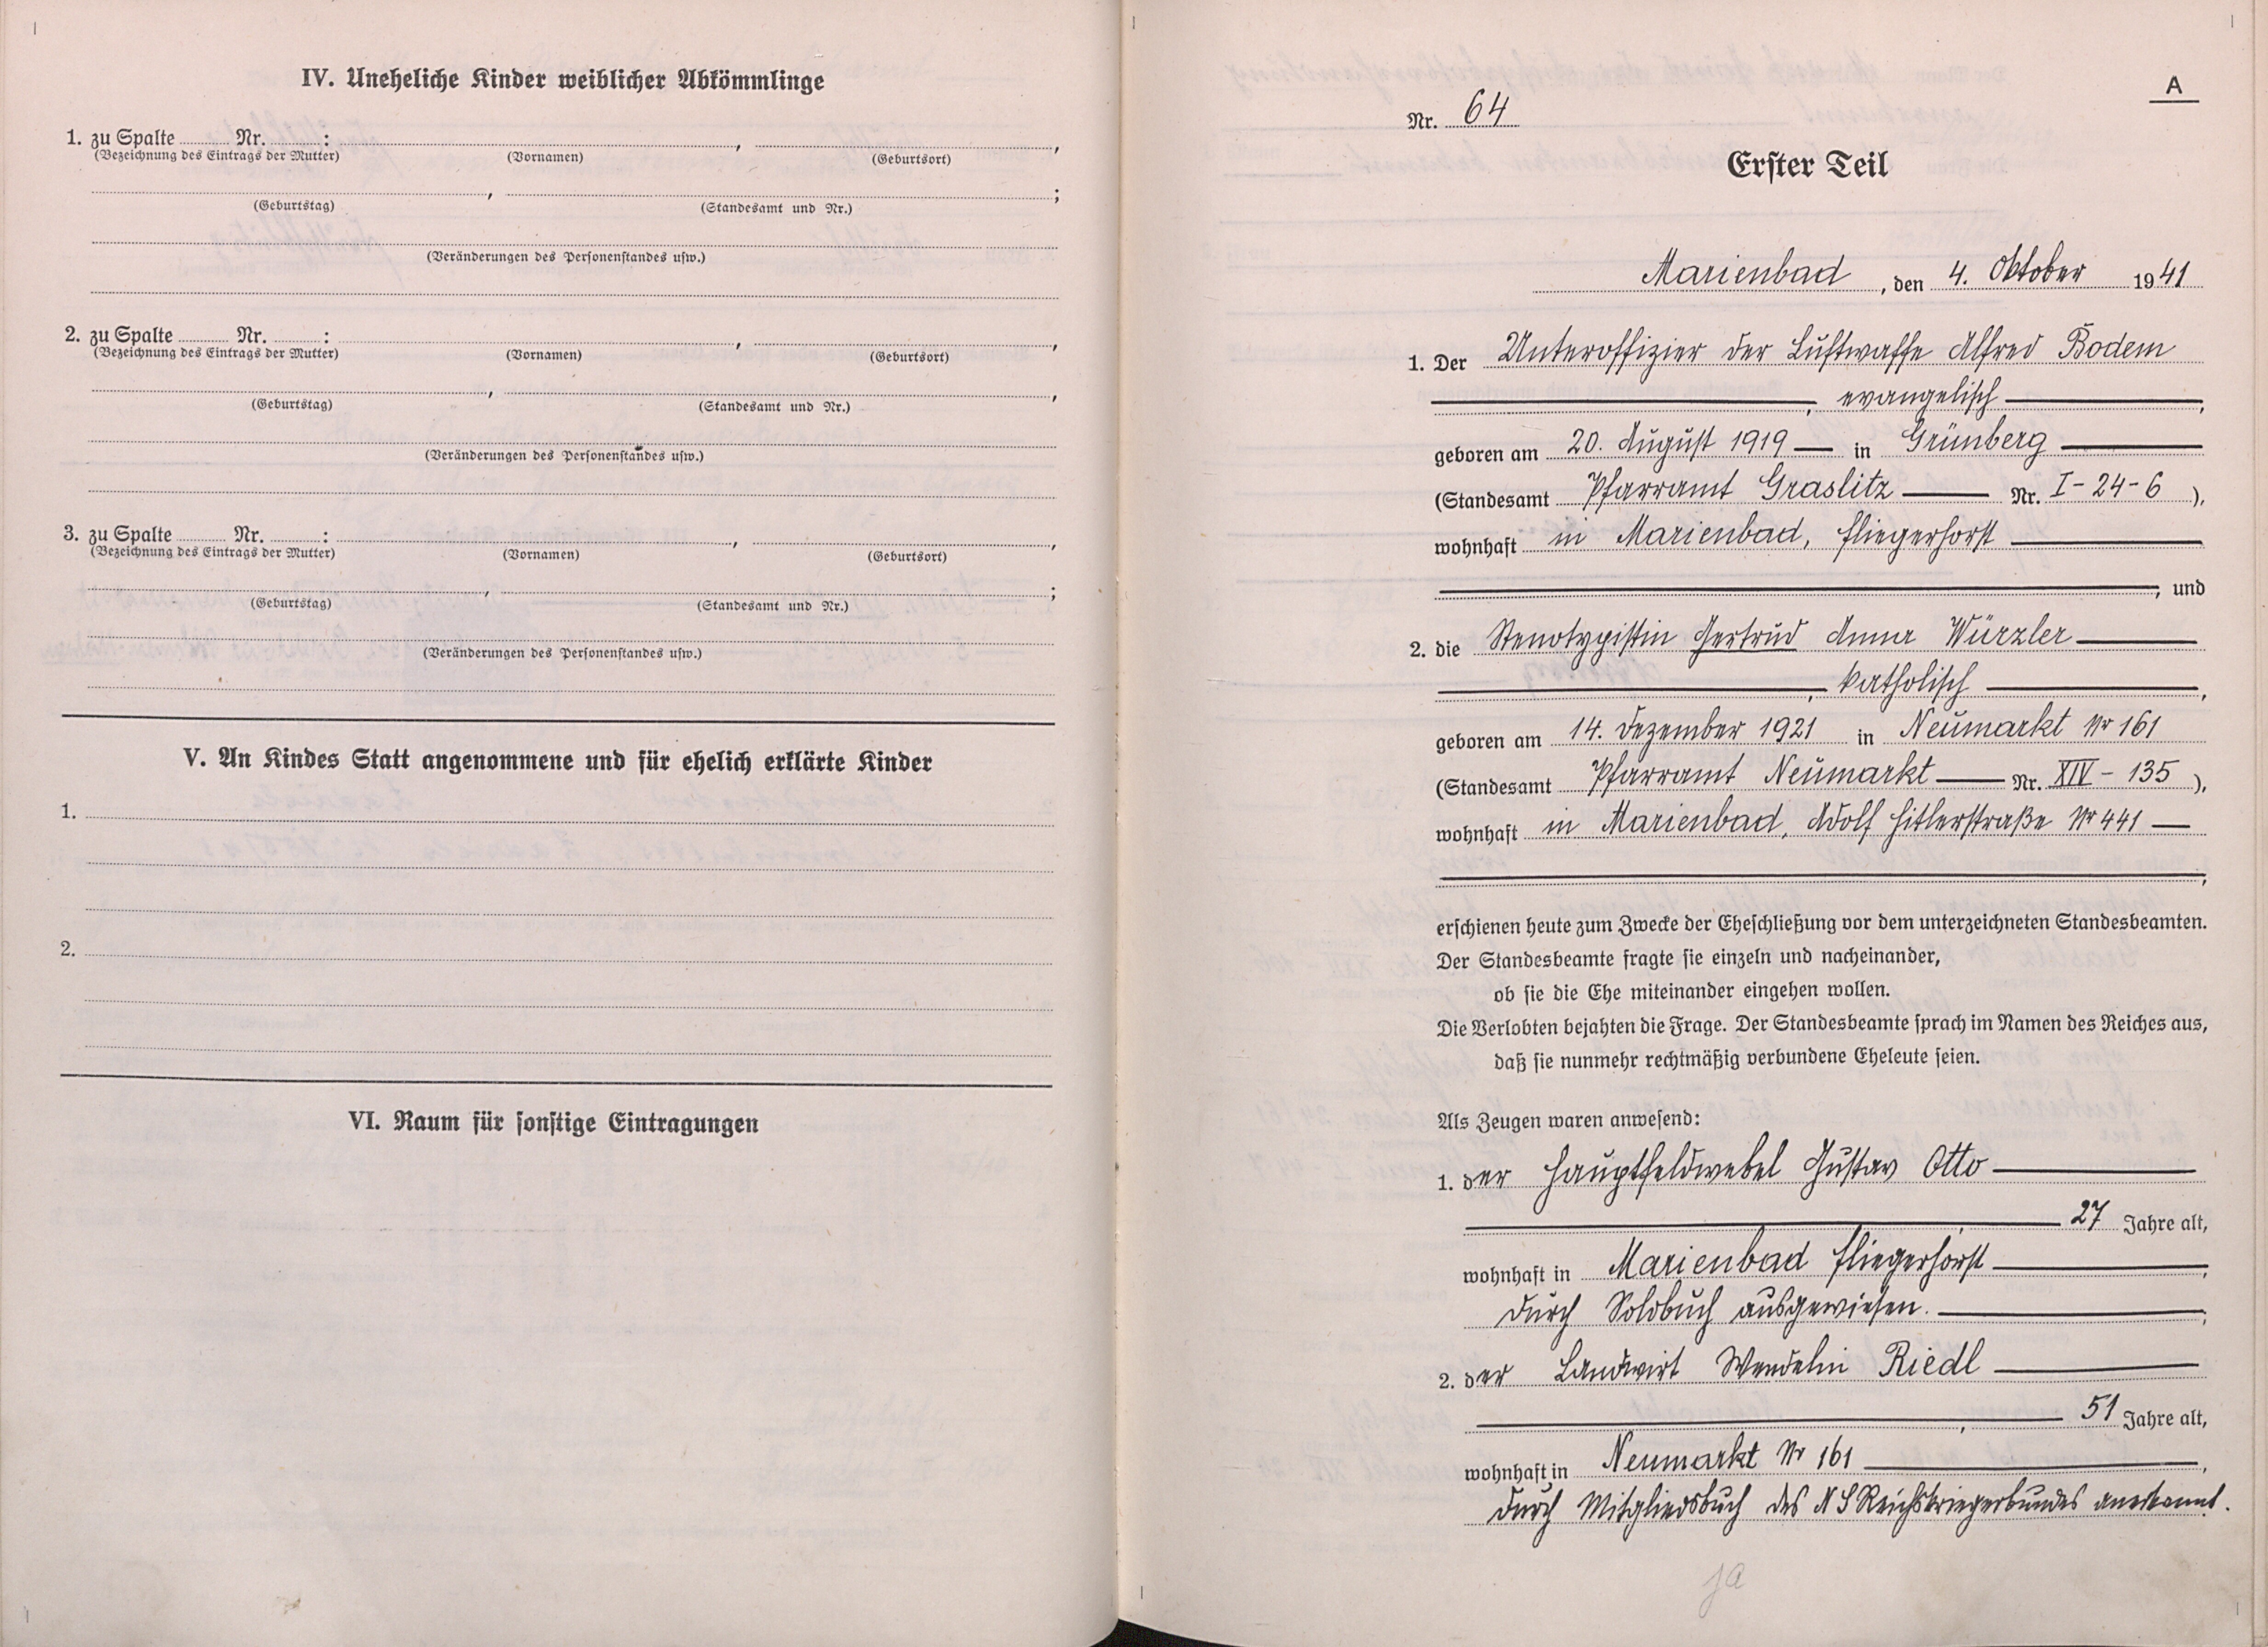 IV. Uneheliche Kinder weiblicher Abkömmlinge
1. zu Spalte ........ Nr. ........ : ........ , ........ ,
(Bezeichnung des Eintrags der Mutter) (Vornamen) (Geburtsort)
........ , ........ ;
(Geburtstag) (Standesamt und Nr.)
(Veränderungen des Personenstandes usw.)
2. zu Spalte ........ Nr. ........ : ........ , ........ ,
(Bezeichnung des Eintrags der Mutter) (Vornamen) (Geburtsort)
........ , ........ ,
(Geburtstag) (Standesamt und Nr.)
(Veränderungen des Personenstandes usw.)
3. zu Spalte ........ Nr. ........ : ........ , ........ ,
(Bezeichnung des Eintrags der Mutter) (Vornamen) (Geburtsort)
........ , ........ ;
(Geburtstag) (Standesamt und Nr.)
(Veränderungen des Personenstandes usw.)
V. An Kindes Statt angenommene und für ehelich erklärte Kinder
1.
2.
VI. Raum für sonstige Eintragungen
A
Nr. 64
Erster Teil
Marienbad, den 4. Oktober 1941
1. Der Unteroffizier der Luftwaffe Alfred Bodem
, evangelisch ,
geboren am 20. August 1919 — in Grünberg
(Standesamt Pfarramt Graslitz — Nr. I-24-6 ),
wohnhaft in Marienbad, Fliegerhorst
, und
2. die Stenotypistin Gertrud Anna Würzler
, katholisch ,
geboren am 14. Dezember 1921 in Neumarkt Nr 161
(Standesamt Pfarramt Neumarkt — Nr. XIV - 135 ),
wohnhaft in Marienbad, Adolf Hitlerstraße Nr 441 —
,
erschienen heute zum Zwecke der Eheschließung vor dem unterzeichneten Standesbeamten.
Der Standesbeamte fragte sie einzeln und nacheinander,
ob sie die Ehe miteinander eingehen wollen.
Die Verlobten bejahten die Frage. Der Standesbeamte sprach im Namen des Reiches aus,
daß sie nunmehr rechtmäßig verbundene Eheleute seien.
Als Zeugen waren anwesend:
1. der Hauptfeldwebel Gustav Otto
, 27 Jahre alt,
wohnhaft in Marienbad Fliegerhorst ,
durch Soldbuch ausgewiesen. ;
2. der Landwirt Wendelin Riedl
, 51 Jahre alt,
wohnhaft in Neumarkt Nr 161 ,
durch Mitgliedsbuch des N S Reichskriegerbundes anerkannt.